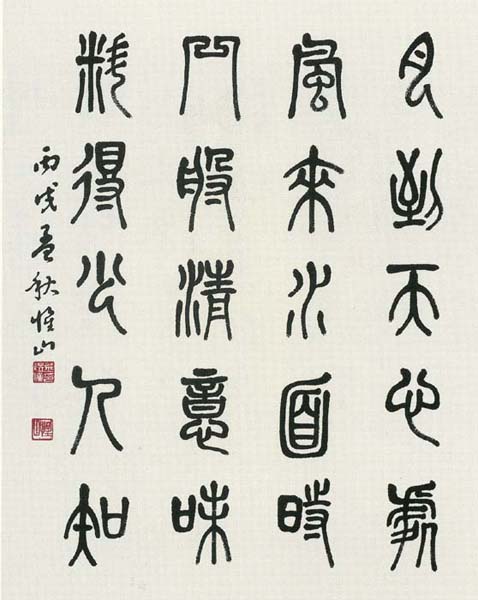 月到天心處
風來水面時
般清意味
料得少人知
丙戌孟秋惟山